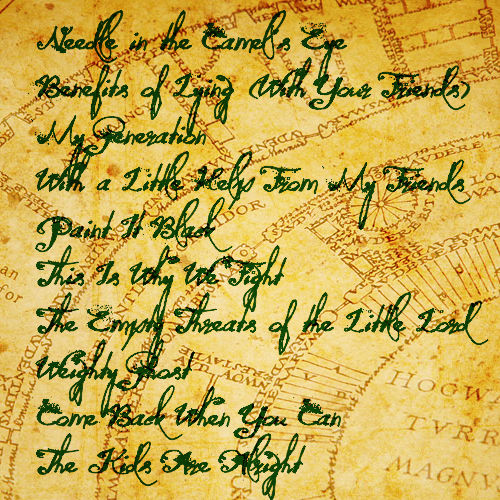 Needle in the Camel's Eye
Benefits of Lying (With Your Friends)
My Generation
With a Little Help From My Friends
Paint It Black
This Is Why We Fight
The Empty Threats of the Little Lord
Weighty Ghost
HOGW
Come Back When You Can
TVRR
The Kids Are Alright
MAGNV